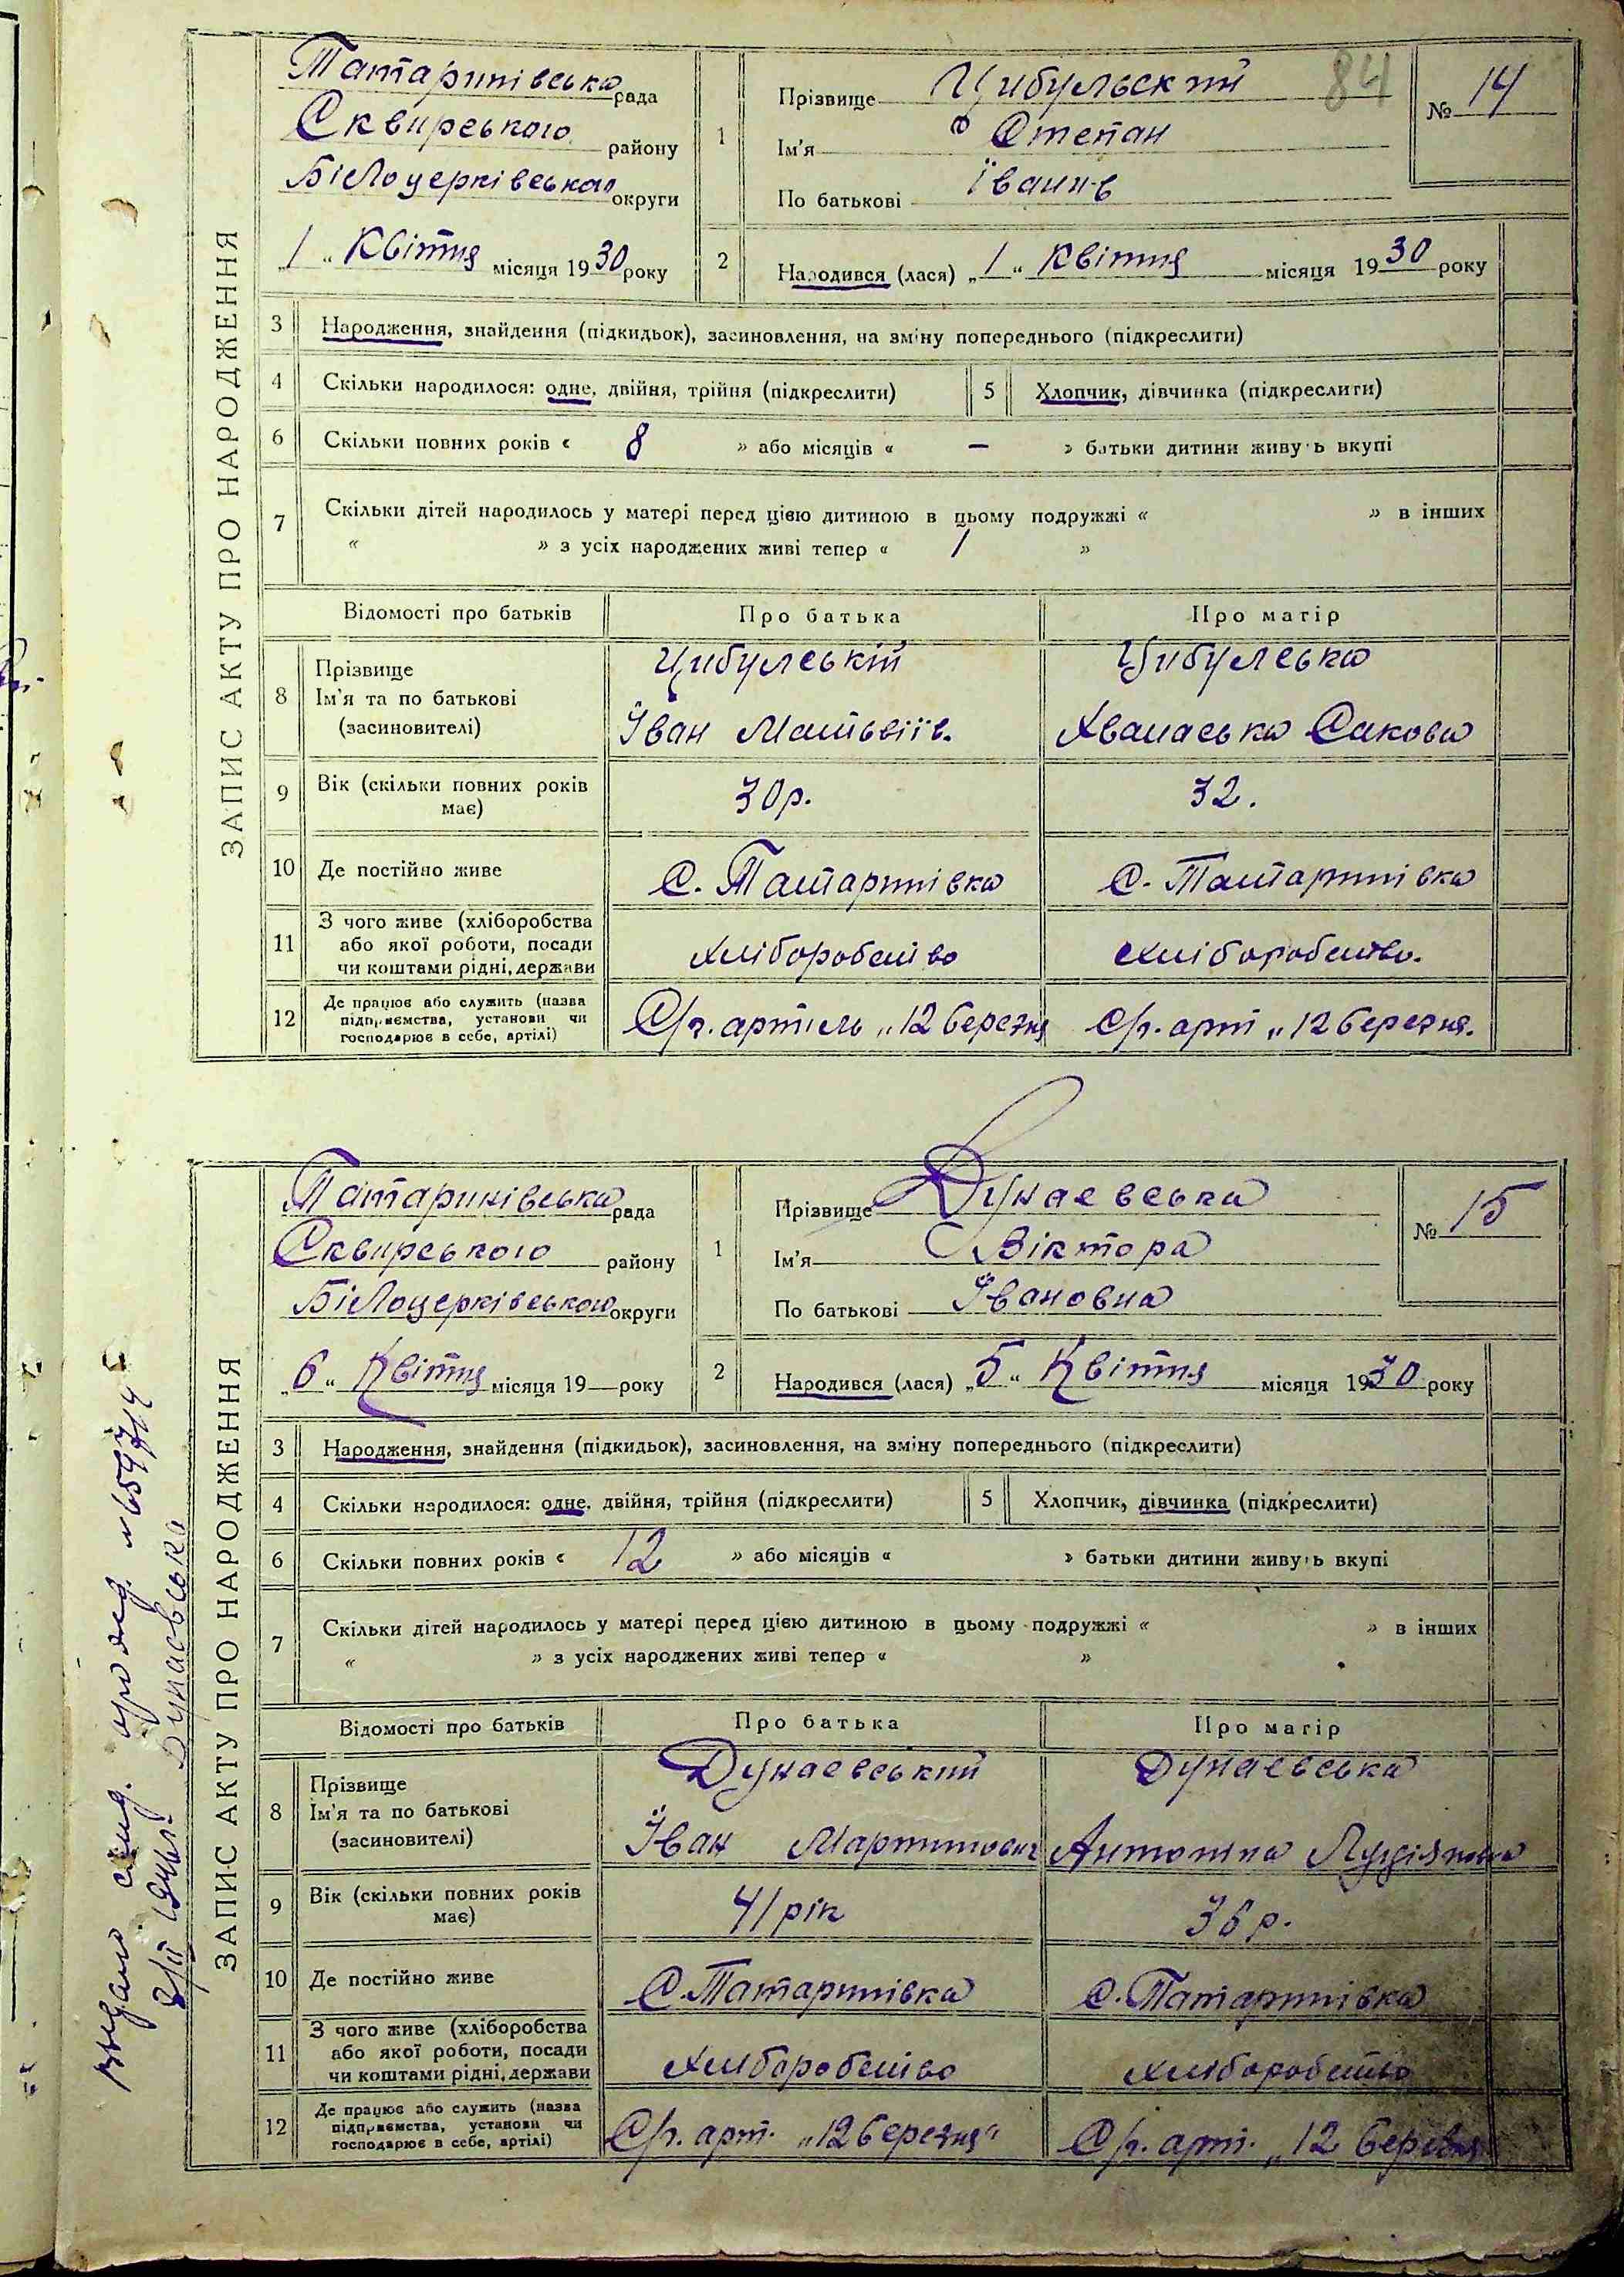 84
ЗАПИС АКТУ ПРО НАРОДЖЕННЯ
Татаринівська рада
Сквирського району
Білоцерківської округи
„1“ Квітня місяця 1930 року
№ 14
1 Прізвище Цибульский
Ім'я Степан
По батькові Їванів
2 Народився (лася) „1“ Квітня місяця 1930 року
3 Народження, знайдення (підкидьок), засиновлення, на зміну попереднього (підкреслити)
4 Скільки народилося: одне, двійня, трійня (підкреслити) 5 Хлопчик, дівчинка (підкреслити)
6 Скільки повних років « 8 » або місяців « – » батьки дитини живуть вкупі
7 Скільки дітей народилось у матері перед цією дитиною в цьому подружжі « » в інших
« » з усіх народжених живі тепер « 1 »
Відомості про батьків Про батька Про матір
8 Прізвище
Ім'я та по батькові
(засиновителі)
Цибулській Цибулська
Їван Матьвіїв. Хванаська Сакова
9 Вік (скільки повних років має) 30р. 32.
10 Де постійно живе С. Татаринівка С. Татаринівка
11 З чого живе (хліборобства
або якої роботи, посади
чи коштами рідні, держави
хліборобство хліборобство.
12 Де працює або служить (назва
підприємства, установи чи
господарює в себе, артілі)
С/г. артіль „12 березня С/г. арт „12 березня.
ЗАПИС АКТУ ПРО НАРОДЖЕННЯ
Татаринівська рада
Сквирського району
Білоцерківської округи
„6“ Квітня місяця 19— року
№ 15
1 Прізвище Дунаевська
Ім'я Віктора
По батькові Ївановна
2 Народився (лася) „5“ Квітня місяця 1930 року
3 Народження, знайдення (підкидьок), засиновлення, на зміну попереднього (підкреслити)
4 Скільки народилося: одне, двійня, трійня (підкреслити) 5 Хлопчик, дівчинка (підкреслити)
6 Скільки повних років « 12 » або місяців « » батьки дитини живуть вкупі
7 Скільки дітей народилось у матері перед цією дитиною в цьому подружжі « » в інших
« » з усіх народжених живі тепер « »
Відомості про батьків Про батька Про матір
8 Прізвище
Ім'я та по батькові
(засиновителі)
Дунаевський Дунаевська
Їван Мартинович Антоніна Луціянова
9 Вік (скільки повних років має) 41 рік 36 р.
10 Де постійно живе С. Татаринівка С. Татаринівка
11 З чого живе (хліборобства
або якої роботи, посади
чи коштами рідні, держави
хліборобство хліборобство
12 Де працює або служить (назва
підприємства, установи чи
господарює в себе, артілі)
С/г. арт. „12 березня“ С/г. арт. „12 березня
Дунаевська